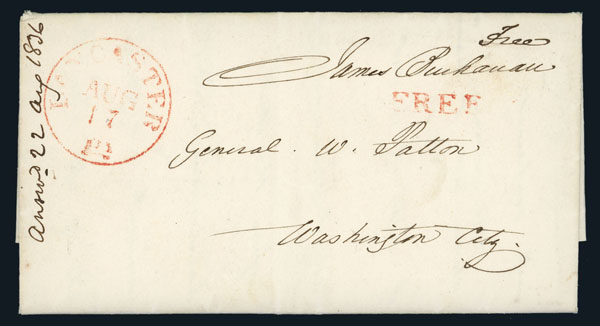 Free
James Buchanan
FREE
LANCASTER
AUG
17
Pa
General. W. Patton
Washington City.
Answd 22 Aug 1836